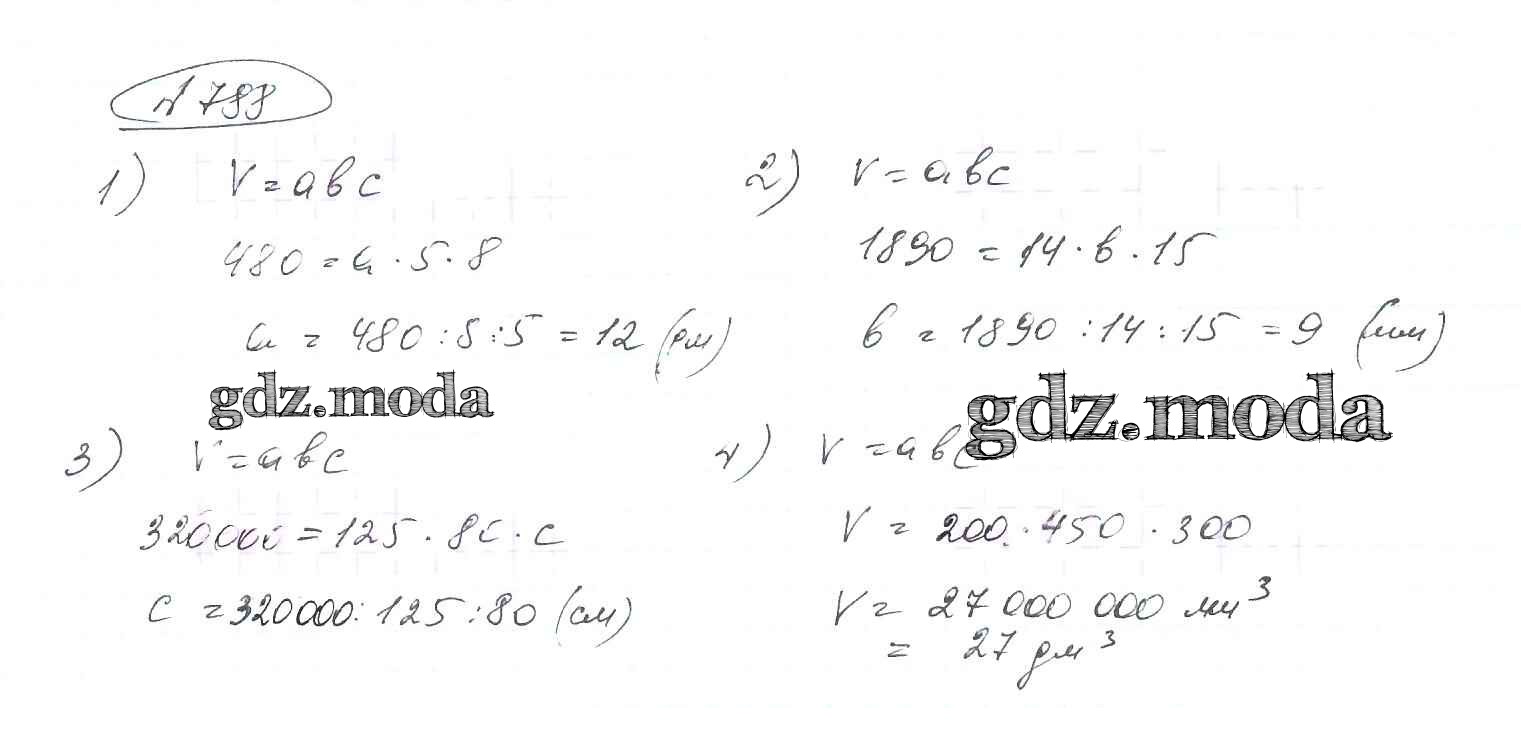 № 788
1) V = abc
480 = a · 5 · 8
a = 480 : 8 : 5 = 12 (дм)
2) V = abc
1890 = 14 · b · 15
b = 1890 : 14 : 15 = 9 (мм)
gdz.moda
gdz.moda
3) V = abc
320000 = 125 · 80 · c
c = 320000 : 125 : 80 (см)
4) V = abc
V = 200 · 450 · 300
V = 27 000 000 мм³
= 27 дм³